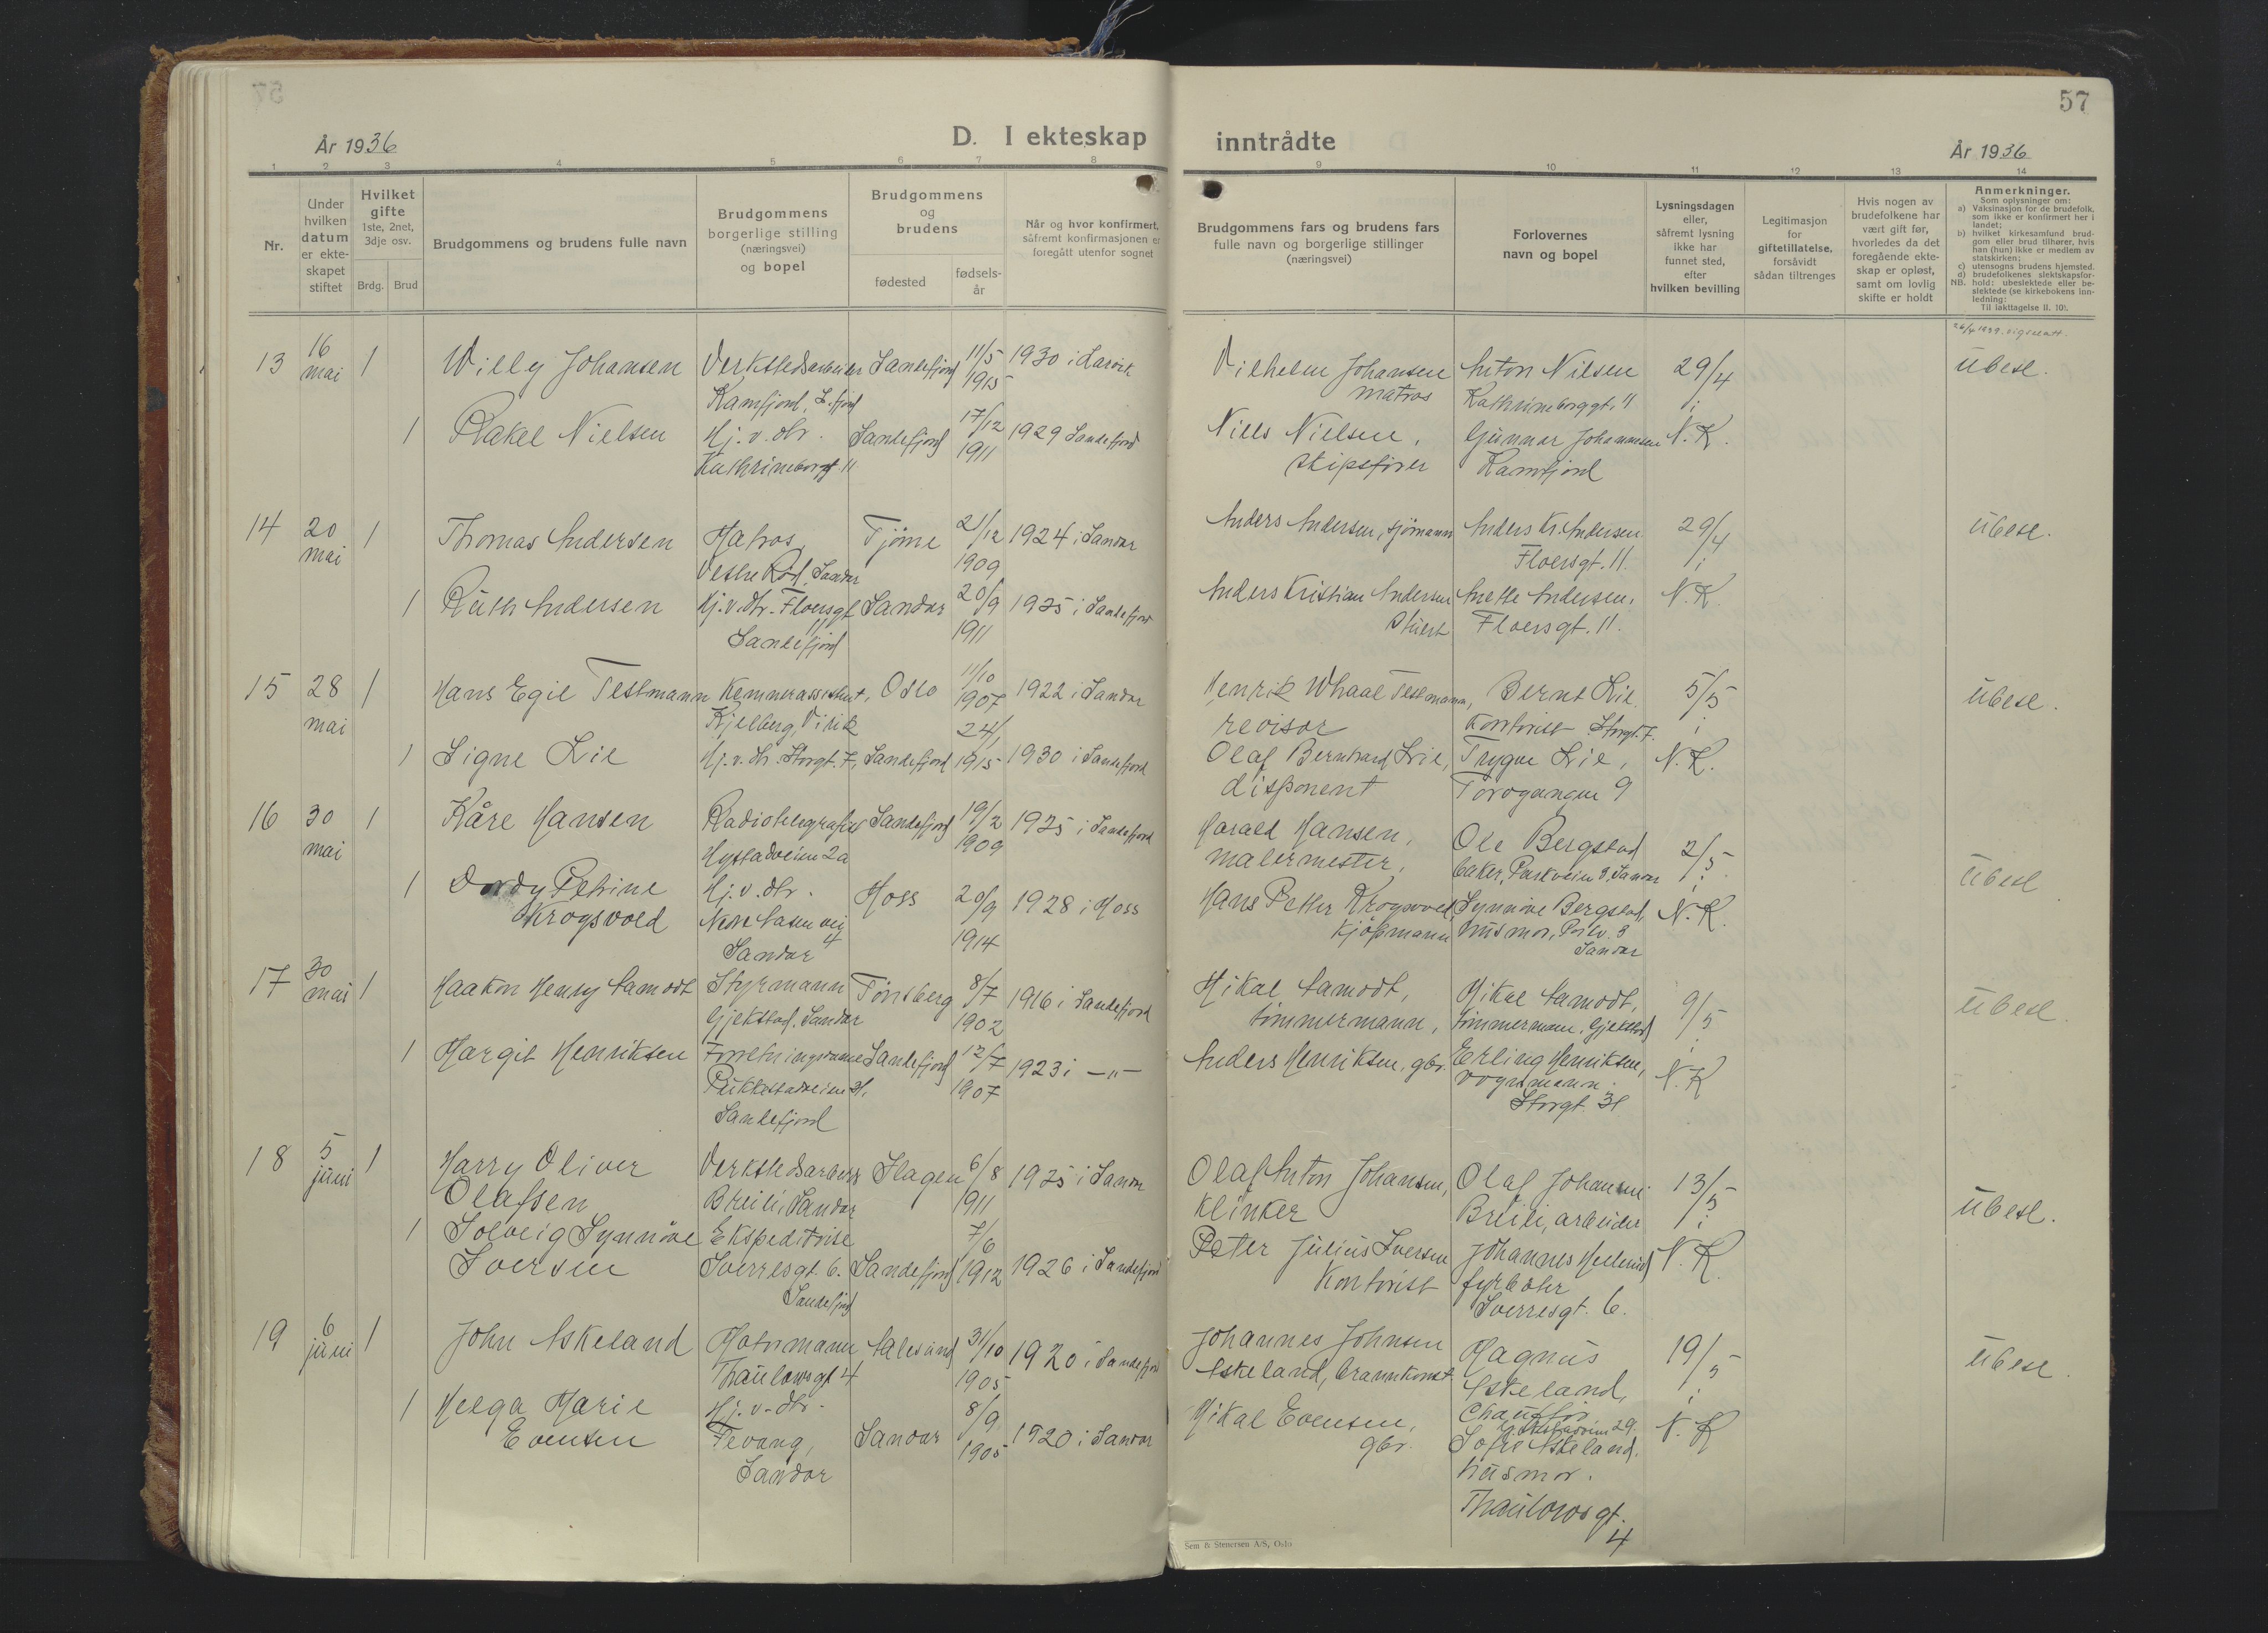 57
År 1936
D. I ekteskap inntrådte
År 1936
1 2 3 4 5 6 7 8 9 10 11 12 13 14
Nr.
Under
hvilken
datum
er ekte-
skapet
stiftet
Hvilket
gifte
1ste, 2net,
3dje osv.
Brdg. Brud
Brudgommens og brudens fulle navn
Brudgommens
borgerlige stilling
(næringsvei)
og bopel
Brudgommens
og
brudens
fødested
fødsels-
år
Når og hvor konfirmert,
såfremt konfirmasjonen er
foregått utenfor sognet
Brudgommens fars og brudens fars
fulle navn og borgerlige stillinger
(næringsvei)
Forlovernes
navn og bopel
Lysningsdagen
eller,
såfremt lysning
ikke har
funnet sted,
efter
hvilken bevilling
Legitimasjon
for
giftetillatelse,
forsåvidt
sådan tiltrenges
Hvis nogen av
brudefolkene har
vært gift før,
hvorledes da det
foregående ekte-
skap er opløst,
samt om lovlig
skifte er holdt
Anmerkninger.
Som oplysninger om:
a) Vaksinasjon for de brudefolk,
som ikke er konfirmert her i
landet;
b) hvilket kirkesamfund brud-
gom eller brud tilhører, hvis
han (hun) ikke er medlem av
statskirken;
c) utensogns brudens hjemsted.
d) brudefolkenes slektskapsfor-
NB. hold: ubeslektede eller be-
slektede (se kirkebokens inn-
ledning:
Til iakttagelse II. 10).
13 16 mai 1 Willy Johansen Verkstedsarbeider Sandefjord 11/5 1915 1930 i Larvik
Kamfjord, S.fjord
1 Rakel Nielsen Hj.v. dtr. Sandefjord 17/12 1911 1929 Sandefjord
Kathrineborggt 11
Vilhelm Johansen Anton Nilsen 29/4 ubesl.
matros Kathrineborggt. 11 i
Niels Nielsen, Gunnar Johannesen N.K.
skipsfører Kamfjord
14 20 mai 1 Thomas Andersen Matros, Tjøme 21/12 1909 1924 i Sandar
Vestre Rød, Sandar
1 Ruth Andersen Hj.v.dtr. Floersgt 11 Sandar 20/9 1911 1925 i Sandefjord
Sandefjord
Anders Andersen, sjømann Anders Kr. Andersen 29/4 ubesl.
Floersgt. 11. i
Anders Kristian Andersen Anette Andersen, N.K.
Stuert Floersgt. 11.
15 28 mai 1 Hans Egil Testmann Kemnerassistent, Oslo 11/10 1907 1922 i Sandar
Kjelberg, Virik
1 Signe Lie Hj.v.dtr. Storgt. 7, Sandefjord 24/1 1915 1930 i Sandefjord
Henrik Whaal Testmann, Bernt Lie 5/5 ubesl.
revisor Kontorist Storgt. 7. i
Olaf Bernhard Lie, Trygve Lie, N.K.
disponent Torvgangen 9
16 30 mai 1 Kåre Hansen Radiotelegrafist Sandefjord 19/2 1909 1925 i Sandefjord
Hystadveien 2a
1 Dordy Petrine Hj.v.dtr. Moss 20/9 1914 1928 i Moss
Krogsvold
4
Sandar
Harald Hansen, Ole Bergstad 2/5 ubesl
malermester, baker, Parkveien 3, Sandar i
Hans Petter Krogsvold, Synnøve Bergstad, N.K.
Kjøpmann husmor, Parkv. 3
Sandar
17 30 mai 1 Haakon Henry Aamodt Styrmann Tønsberg 8/7 1902 1916 i Sandefjord
Gjekstad, Sandar
1 Margit Henriksen Forretningsdame Sandefjord 12/7 1907 1923 i —"—
Pukkestadveien 31,
Sandefjord
Mikal Aamodt, Mikal Aamodt, 9/5 ubesl.
tømmermann, tømmermann, Gjekstad i
Anders Henriksen, gbr. Erling Henriksen, N.K
vognmann.
Storgt. 31
18 5 juni 1 Harry Oliver Verkstedsarbeider Slagen 6/8 1911 1925 i Sandar
Olafsen Breili, Sandar
1 Solveig Synnøve Ekspeditrise 7/6
Iversen Sverresgt. 6. Sandefjord 1912 1926 i Sandefjord
Sandefjord
Olaf Anton Johansen, Olaf Johansen 13/5 ubesl.
Klinker Breili, arbeider i
Peter Julius Iversen Johannes N.K.
Kontorist fyrbøter
Sverresgt. 6.
19 6 juni 1 John Askeland Motormann Aalesund 31/10 1905 1920 i Sandefjord
Thaulowsgt 4
1 Helga Marie Hj.v.dtr. 8/9
Evensen Fevang, Sandar 1905 1920 i Sandar
Sandar
Johannes Johnsen Magnus 19/5 ubesl.
Askeland, brannkonst. Askeland, i
Mikal Evensen, Chauffør N.K
gbr. 29.
Sofie Askeland,
husmor.
Thaulowsgt.
4
Sem & Stenersen A/S, Oslo